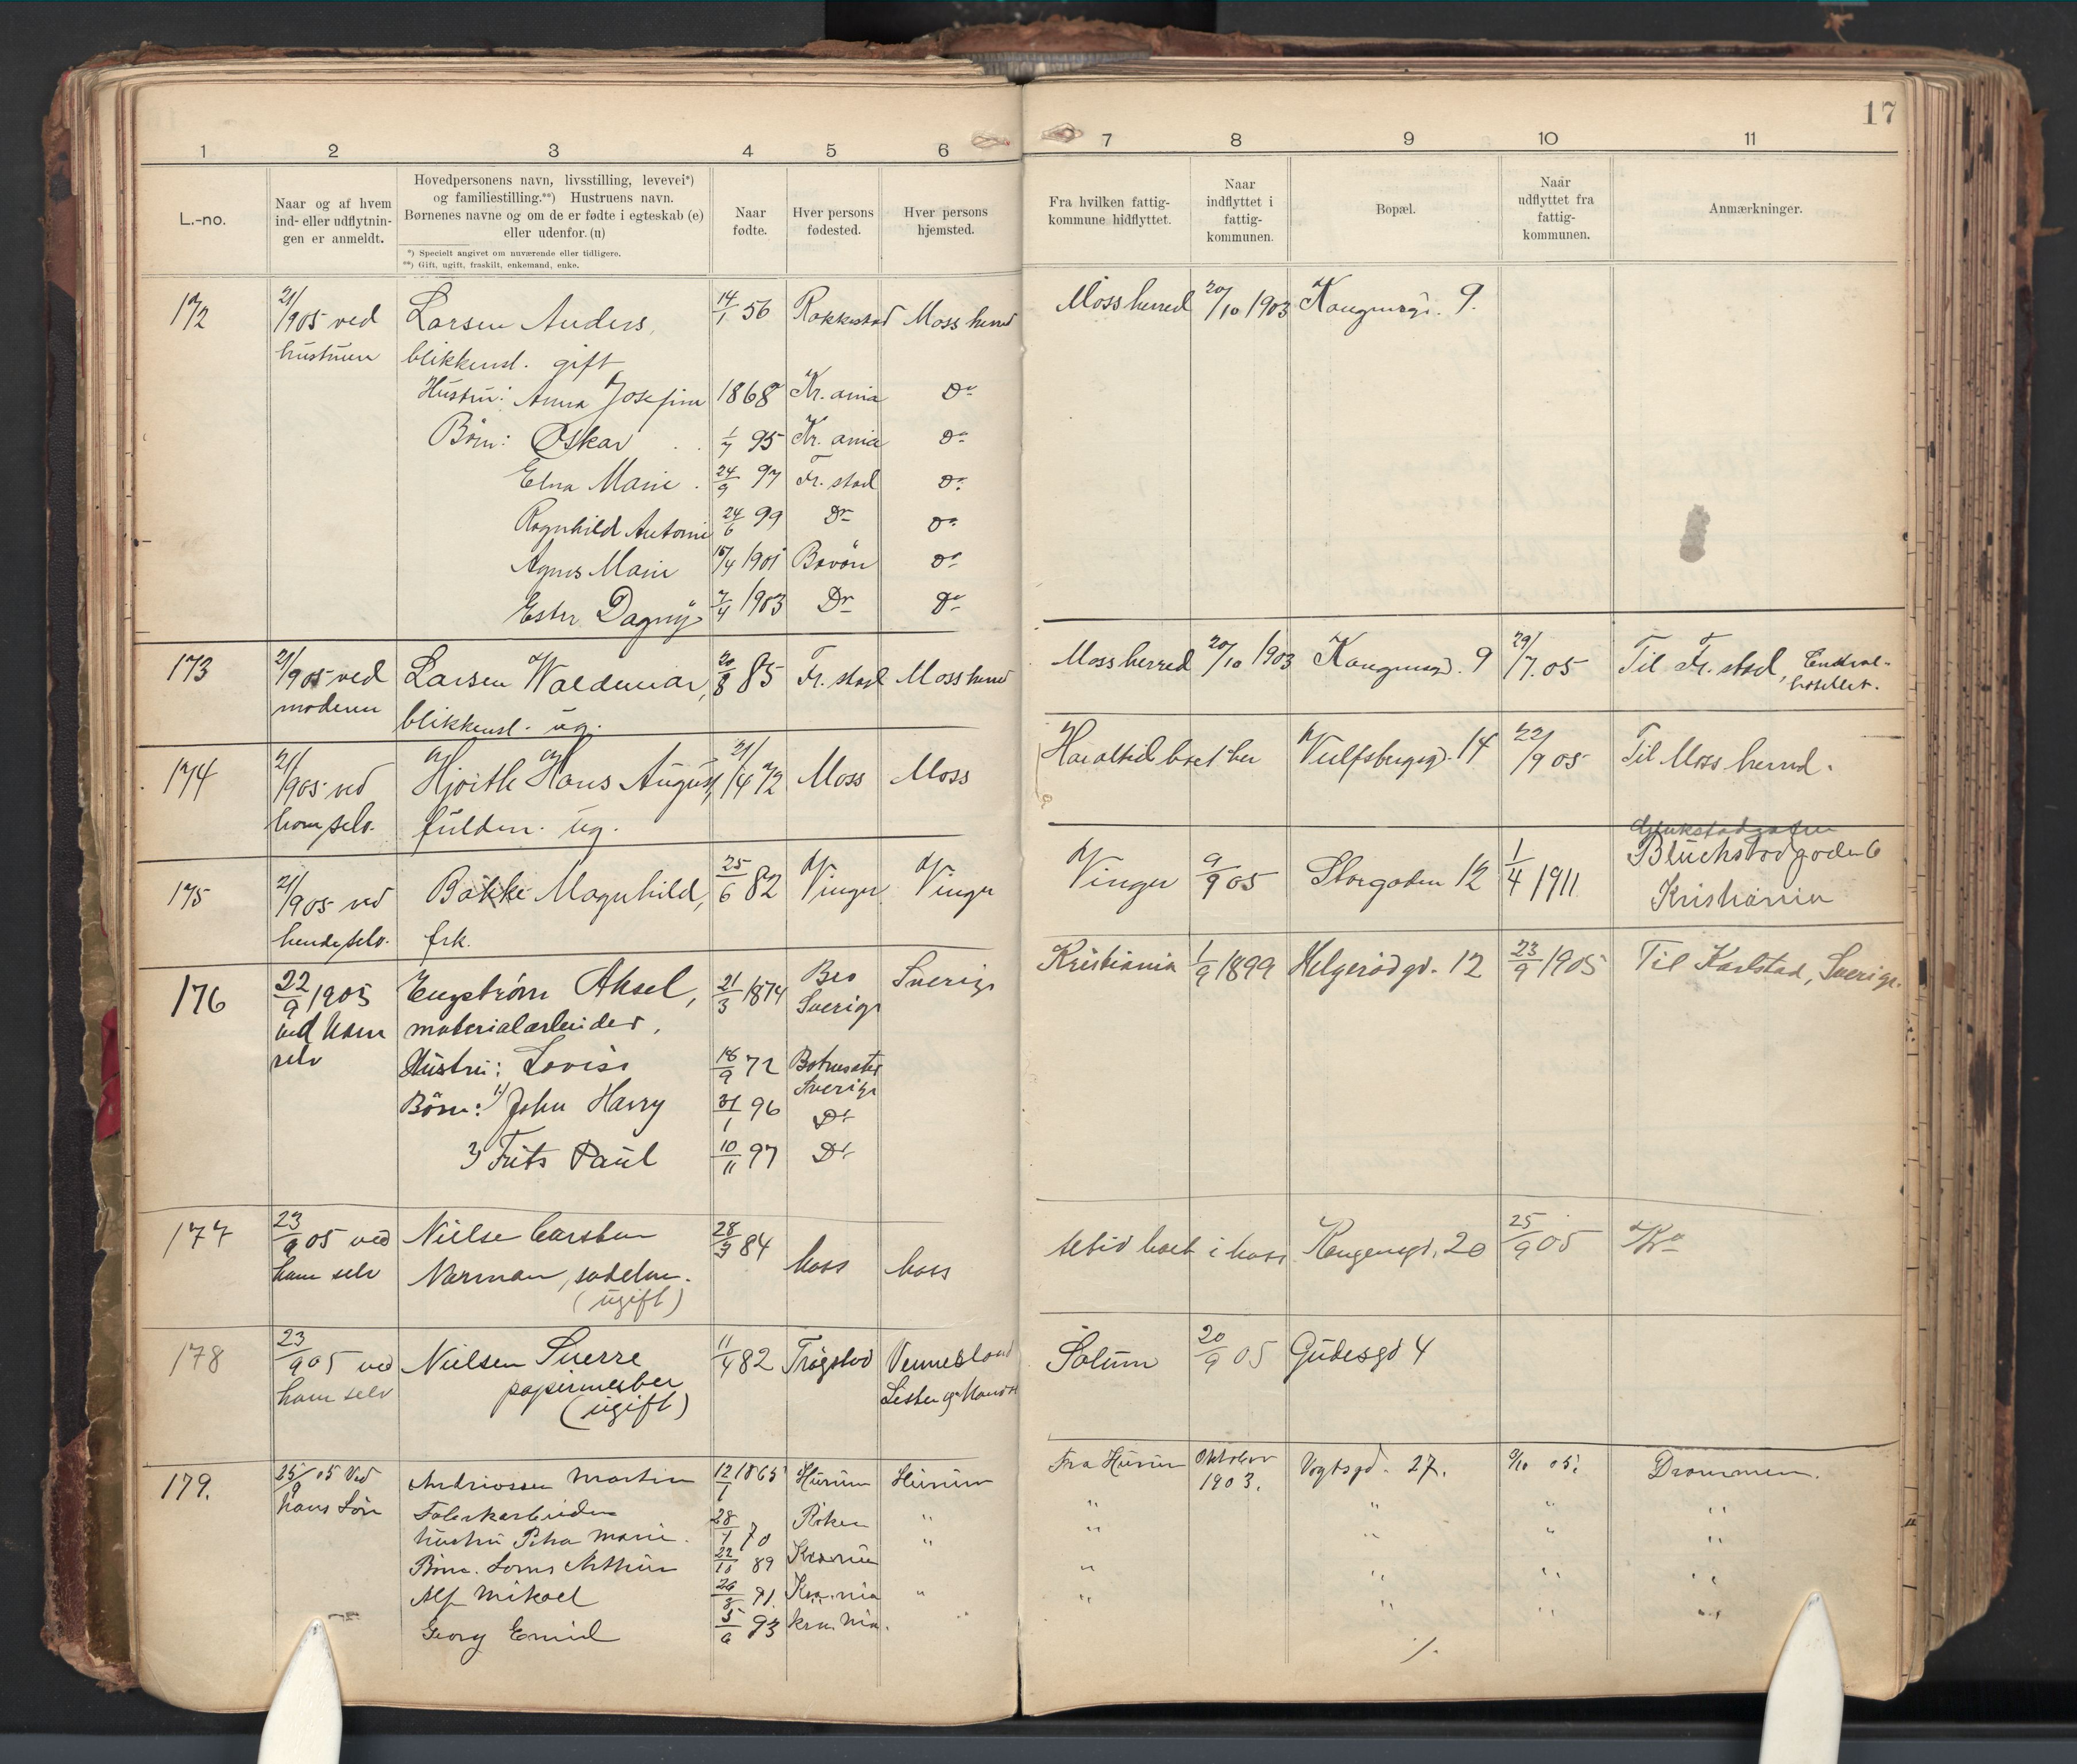 17
1 2 3 4 5 6 7 8 9 10 11
L.-no.
Naar og af hvem
ind- eller udflytnin-
gen er anmeldt.
Hovedpersonens navn, livsstilling, levevei*)
og familiestilling.**) Hustruens navn.
Børnenes navne og om de er fødte i egteskab (e)
eller udenfor. (u)
*) Specielt angivet om nuværende eller tidligere.
**) Gift, ugift, fraskilt, enkemand, enke.
Naar
fødte.
Hver persons
fødested.
Hver persons
hjemsted.
Fra hvilken fattig-
kommune hidflyttet.
Naar
indflyttet i
fattig-
kommunen.
Bopæl.
Naar
udflyttet fra
fattig-
kommunen.
Anmærkninger.
172 21/905 ved Larsen Anders, 14/1 56 Rakkestad Moss herred Moss herred 20/10 1903 Kongensgd. 9.
hustruen blikkensl. gift
Hustru: Anna Josefine 1868 Kr.ania Do
Børn: Oskar 1/7 95 Kr.ania Do
Elna Marie 24/9 97 Fr.stad Do
Ragnhild Antonie 24/6 99 Do Do
Agnes Marie 15/4 1901 Bevöen Do
Ester Dagny 7/4 1903 Do Do
173 21/905 ved Larsen Waldemar, 20/8 85 Fr.stad Moss herred Moss herred 20/10 1903 Kongensgd. 9 29/7.05 Til Fr.stad, Central-
moderen blikkensl. ug. hotellet.
174 21/905 ved Hjorth Hans August, 21/4 72 Moss Moss Har altid boet her Vulfsbergsgd. 14 22/905 Til Moss herred.
ham selv. fuldm. ug.
175 21/905 ved Bakke Magnhild, 25/6 82 Vinger Vinger Vinger 9/9 05 Storgaden 12 1/4 1911 Blüchstadgaden 6
hende selv. frk. Kristiania
176 22/9 1905 Engström Aksel, 21/3 1874 Bro Sverige Kristiania 1/9 1899 Helgerödgd. 12 23/9 1905 Til Karlstad, Sverige.
ved ham materialarbeider. Sverige
selv Hustru: Lovise 18/9 72
Sverige
Børn: 1) John Harry 31/1 96 Do
2) Frits Paul 10/11 97 Do
177 23/9 05 ved Nielse Carsten 28/3 84 Moss Moss altid boet i Moss Kongensgd. 20 25/9 05 Kra
ham selv Narman, sadelm.
(ugift)
178 23/905 ved Nielsen Sverre 11/4 82 Trögstad Vennesland Solum 20/9 05 Gudesgd 4
ham selv papirmester Lister og Mandal
(ugift)
179. 25/9 05 Ved Andriossen Martin 12/1 1865 Hurum Hurum Fra Hurum Oktober Vogtsgd. 27. 3/10 05. Drammen.
hans Søn Fabrikarbeider 1903.
hustru Petra Marie. 28/1 70 Röken " " " " "
Børn. Arthur 22/10 89 " " " " "
Alf Mikael 26/8 91. Kra.nia " " " " "
Georg Emil 5/6 93 Kra.nia. " " " " "